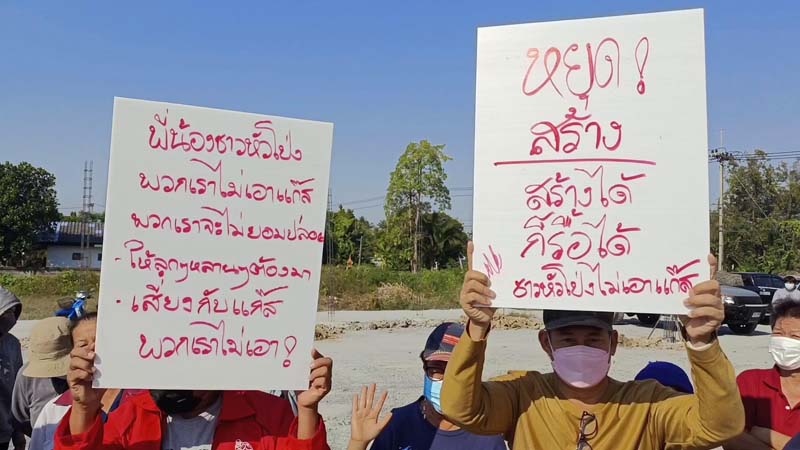 พี่น้องชาวหัวโป่ง
พวกเราไม่เอาแก๊ส
พวกเราจะไม่ยอมปล่อย
· ให้ลูกๆหลานๆต้องมา
· เสี่ยงกับแก๊ส
พวกเราไม่เอา!
หยุด!
สร้าง
สร้างได้
ก็รื้อได้
ชาวหัวโป่งไม่เอาแก๊ส